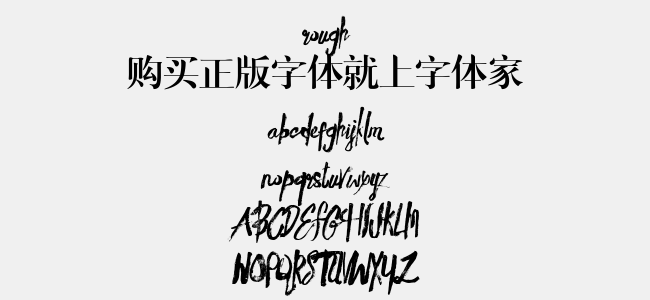 rough
购买正版字体就上字体家
abcdefghijklm
nopqrstuvwxyz
ABCDEfGHIJKLM
NOPQRSTUVWXYZ